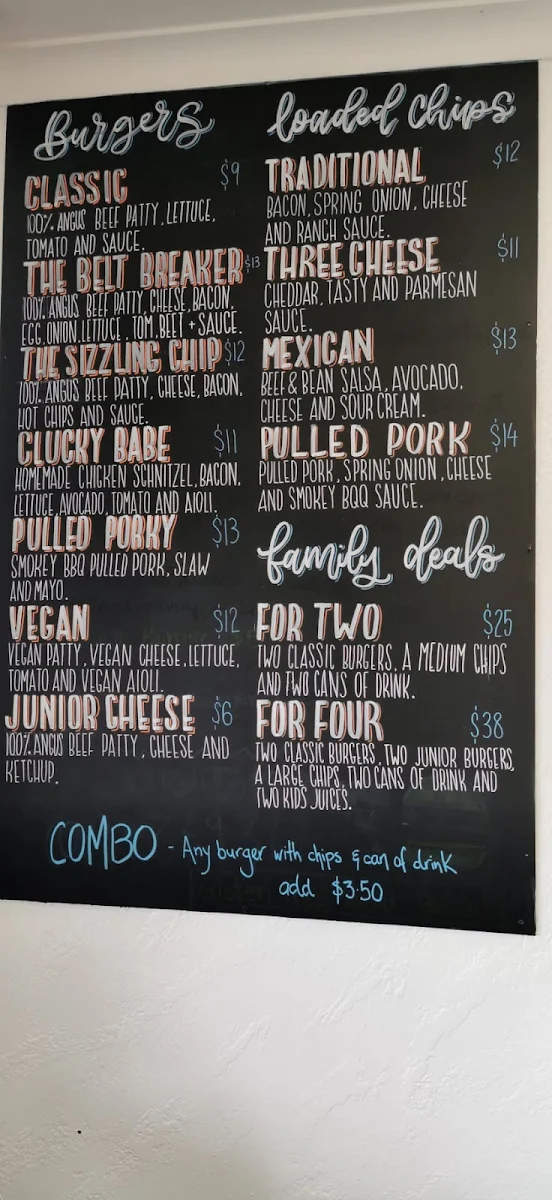 Burgers
CLASSIC $9
100% ANGUS BEEF PATTY, LETTUCE,
TOMATO AND SAUCE.
THE BELT BREAKER $13
100% ANGUS BEEF PATTY, CHEESE, BACON,
EGG, ONION, LETTUCE, TOM, BEET + SAUCE.
THE SIZZLING CHIP $12
100% ANGUS BEEF PATTY, CHEESE, BACON,
HOT CHIPS AND SAUCE.
CLUCKY BABE $11
HOMEMADE CHICKEN SCHNITZEL, BACON,
LETTUCE, AVOCADO, TOMATO AND AIOLI.
PULLED PORKY $13
SMOKEY BBQ PULLED PORK, SLAW
AND MAYO.
VEGAN $12
VEGAN PATTY, VEGAN CHEESE, LETTUCE,
TOMATO AND VEGAN AIOLI.
JUNIOR CHEESE $6
100% ANGUS BEEF PATTY, CHEESE AND
KETCHUP.
loaded chips
TRADITIONAL $12
BACON, SPRING ONION, CHEESE
AND RANCH SAUCE.
THREE CHEESE $11
CHEDDAR, TASTY AND PARMESAN
SAUCE.
MEXICAN $13
BEEF & BEAN SALSA, AVOCADO,
CHEESE AND SOUR CREAM.
PULLED PORK $14
PULLED PORK, SPRING ONION, CHEESE
AND SMOKEY BQQ SAUCE.
family deals
FOR TWO $25
TWO CLASSIC BURGERS, A MEDIUM CHIPS
AND TWO CANS OF DRINK.
FOR FOUR $38
TWO CLASSIC BURGERS, TWO JUNIOR BURGERS,
A LARGE CHIPS, TWO CANS OF DRINK AND
TWO KIDS JUICES.
COMBO - Any burger with chips & can of drink
add $3.50